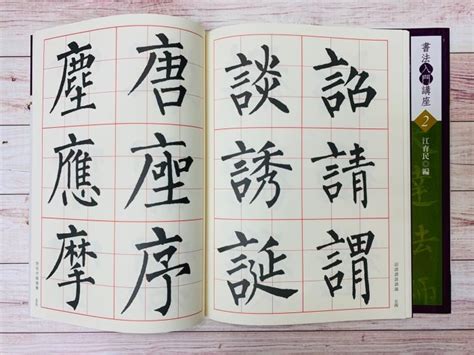 書法入門講座
2
江育民◎編
詔請謂
談誘誕
唐座序
塵應摩